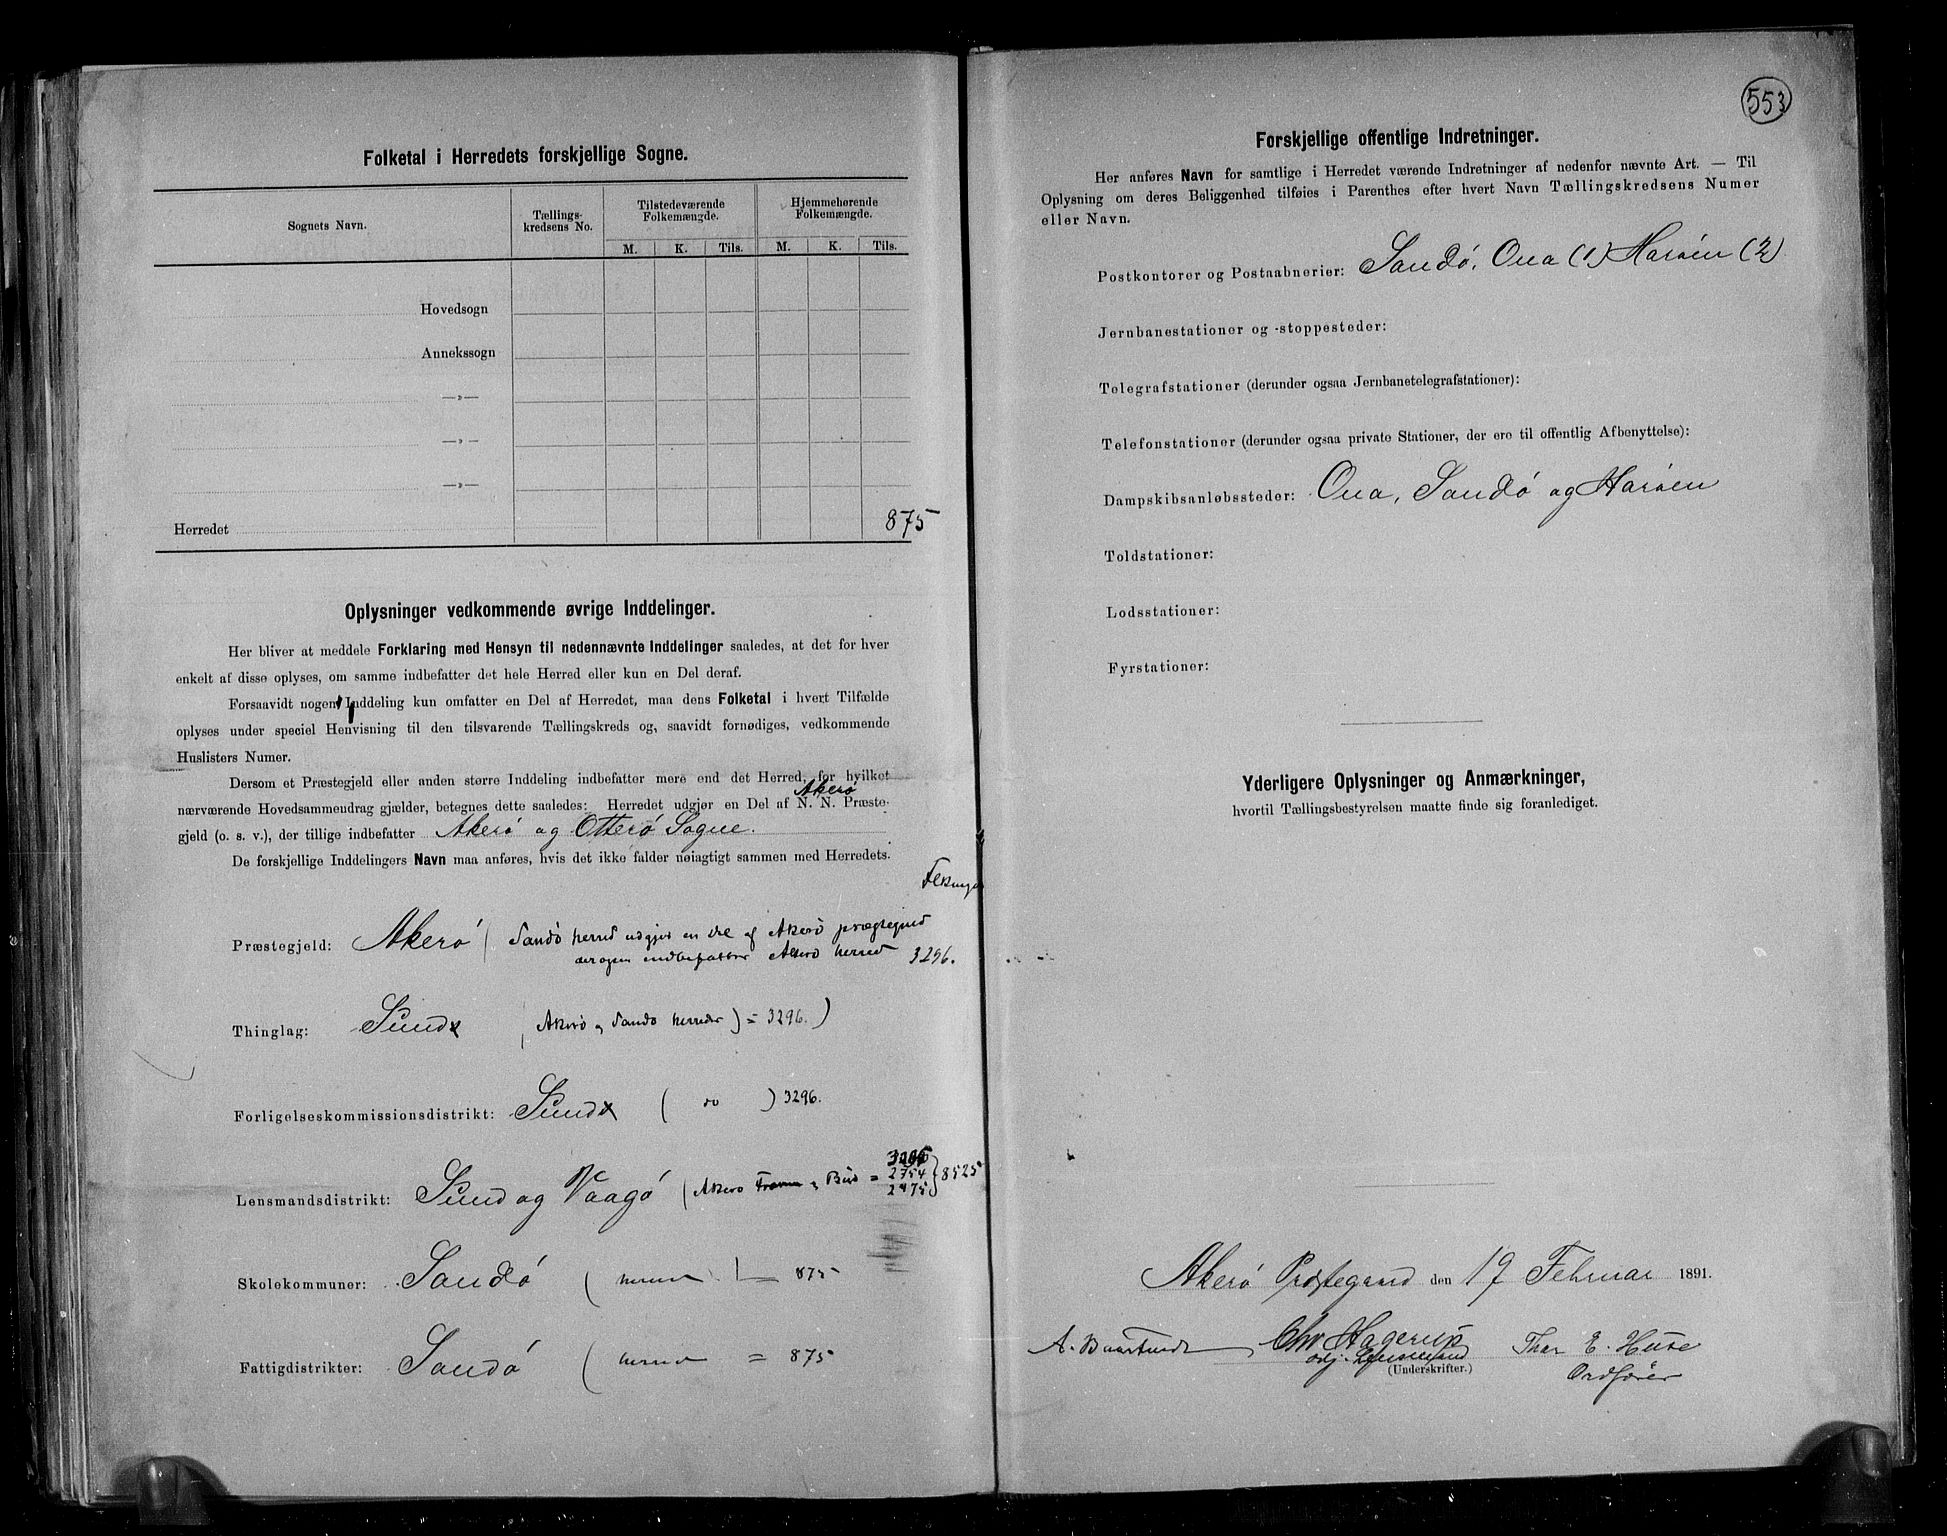 Folketal i Herredets forskjellige Sogne.
Sognets Navn.
Tællings-
kredsens No.
Tilstedeværende
Folkemængde.
Hjemmehørende
Folkemængde.
M. K. Tils. M. K. Tils.
Hovedsogn
Annekssogn
—»—
—»—
—»—
Herredet 875
Oplysninger vedkommende øvrige Inddelinger.
Her bliver at meddele Forklaring med Hensyn til nedennævnte Inddelinger saaledes, at det for hver
enkelt af disse oplyses, om samme indbefatter det hele Herred eller kun en Del deraf.
Forsaavidt nogen Inddeling kun omfatter en Del af Herredet, maa dens Folketal i hvert Tilfælde
oplyses under speciel Henvisning til den tilsvarende Tællingskreds og, saavidt fornødiges, vedkommende
Huslisters Numer.
Dersom et Præstegjeld eller anden større Inddeling indbefatter mere end det Herred, for hvilket
Akerø
nærværende Hovedsammendrag gjælder, betegnes dette saaledes: Herredet udgjør en Del af N. N. Præste-
gjeld (o. s. v.), der tillige indbefatter Akerø og Otterø Sogne.
De forskjellige Inddelingers Navn maa anføres, hvis det ikke falder nøiagtigt sammen med Herredets.
Præstegjeld: Akerø ( Sandø herred udgjør en del af Akerø præstegjeld
indbefatter Akerø herred 3296.
Thinglag: Sund ( Akerø og Sandø herreder ) = 3296. )
Forligelseskommissionsdistrikt: Sund ( do ) 3296.
Lensmandsdistrikt: Sund og Vaagø ( Akerø Fræna og Bud = 3296 2754 2475 } 8525
Skolekommuner: Sandø ( herred ) = 875
Fattigdistrikter: Sandø ( herred = 875
553
Forskjellige offentlige Indretninger.
Her anføres Navn for samtlige i Herredet værende Indretninger af nedenfor nævnte Art. — Til
Oplysning om deres Beliggenhed tilføies i Parenthes efter hvert Navn Tællingskredsens Numer
eller Navn.
Postkontorer og Postaabnerier: Sandø, Ona (1) Harøen (2)
Jernbanestationer og -stoppesteder:
Telegrafstationer (derunder ogsaa Jernbanetelegrafstationer):
Telefonstationer (derunder ogsaa private Stationer, der ere til offentlig Afbenyttelse):
Dampskibsanløbssteder: Ona, Sandø og Harøen
Toldstationer:
Lodsstationer:
Fyrstationer:
Yderligere Oplysninger og Anmærkninger,
hvortil Tællingsbestyrelsen maatte finde sig foranlediget.
Akerø Præstegaard den 19 Februar 1891.
A. Chr Hagerup Thor E. Huse
Lensmand Ordfører
(Underskrifter.)